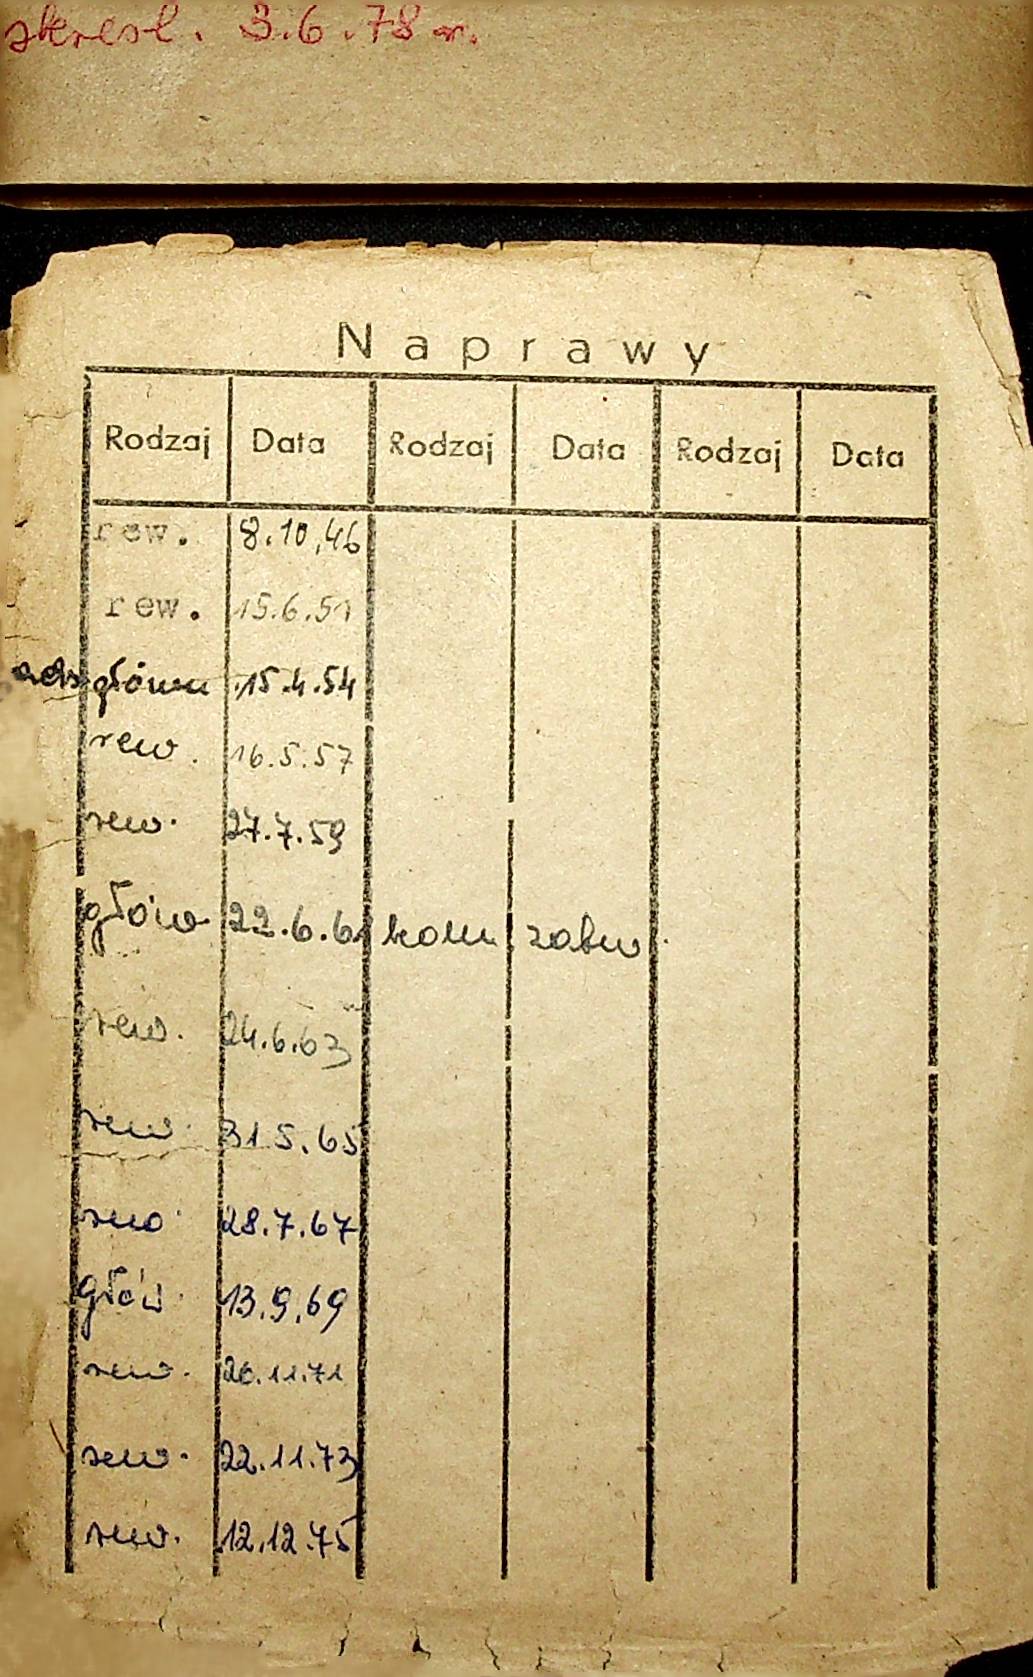 skreśl. 3.6.78 r.
Naprawy
Rodzaj Data Rodzaj Data Rodzaj Data
rew. 8.10.46
rew. 15.6.51
główna 15.4.54
rew. 16.5.57
rew. 27.7.59
głów 22.6.61
rew. 24.6.63
rew. 31.5.65
rew. 28.7.67
głów. 13.9.69
rew. 26.11.71
rew. 22.11.73
rew. 12.12.75